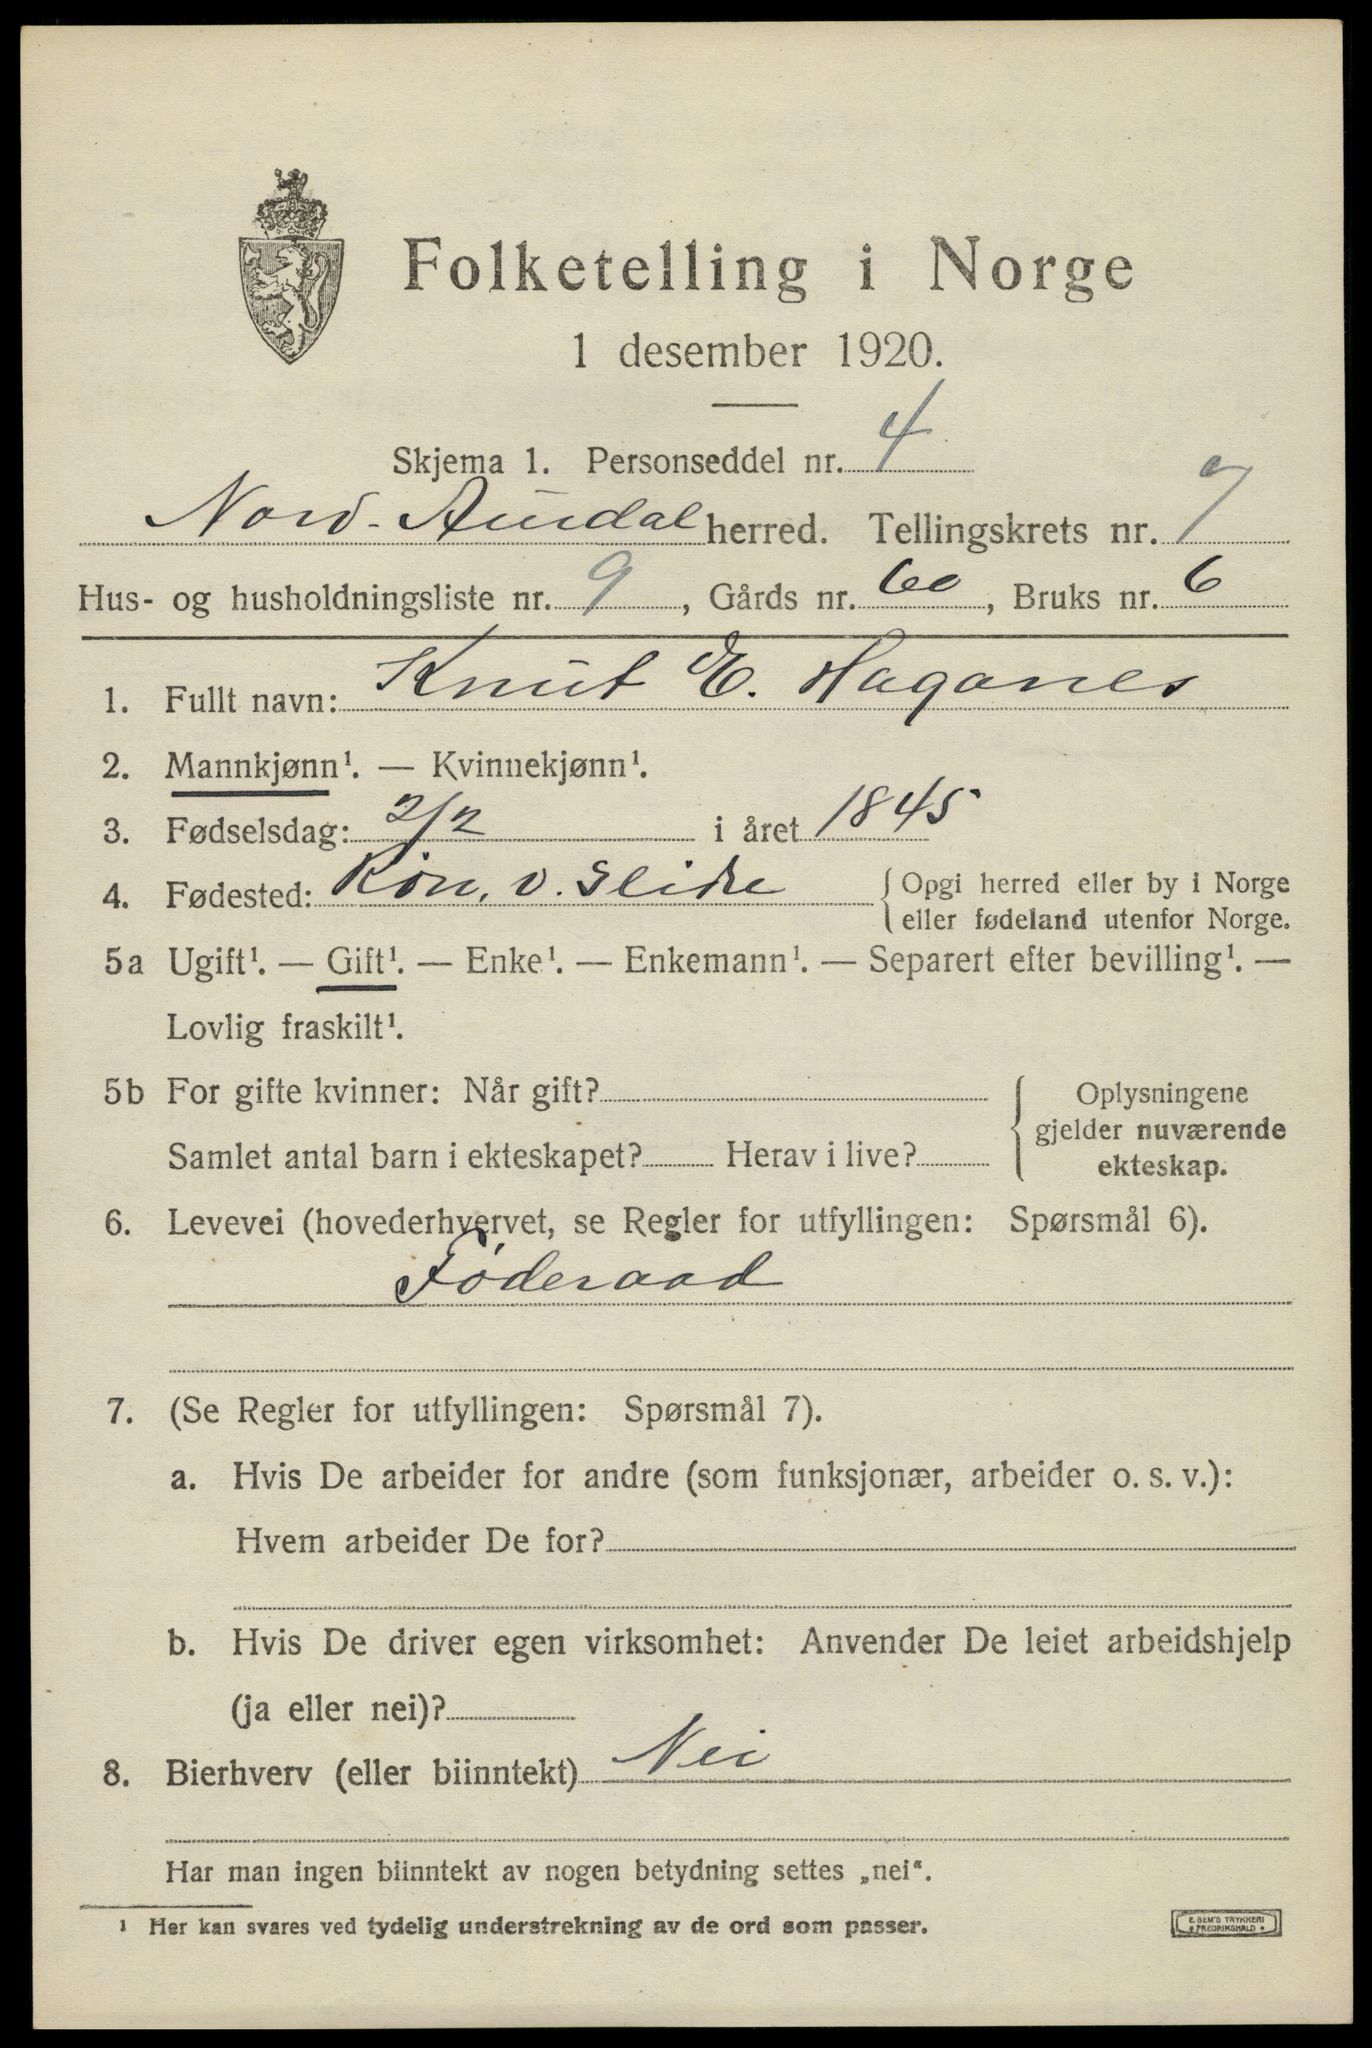 Folketelling i Norge
1 desember 1920.
Skjema 1. Personseddel nr. 4
Nord-Aurdal herred. Tellingskrets nr. 7
Hus- og husholdningsliste nr. 9, Gårds nr. 60, Bruks nr. 6
1. Fullt navn: Knut E. Haganes
2. Mannkjønn¹. — Kvinnekjønn¹.
3. Fødselsdag: 2/2 i året 1845
4. Fødested: Røn, v. Slidre { Opgi herred eller by i Norge
eller fødeland utenfor Norge.
5a Ugift¹. — Gift¹. — Enke¹. — Enkemann¹. — Separert efter bevilling¹. —
Lovlig fraskilt¹.
5b For gifte kvinner: Når gift?
Samlet antal barn i ekteskapet? Herav i live?
Oplysningene
gjelder nuværende
ekteskap.
6. Levevei (hovederhvervet, se Regler for utfyllingen: Spørsmål 6).
Føderaad
7. (Se Regler for utfyllingen: Spørsmål 7).
a. Hvis De arbeider for andre (som funksjonær, arbeider o. s. v.):
Hvem arbeider De for?
b. Hvis De driver egen virksomhet: Anvender De leiet arbeidshjelp
(ja eller nei)?
8. Bierhverv (eller biinntekt) Nei
Har man ingen biinntekt av nogen betydning settes „nei“.
¹ Her kan svares ved tydelig understrekning av de ord som passer.
E. SEM'S TRYKKERI
• FREDRIKSHALD •